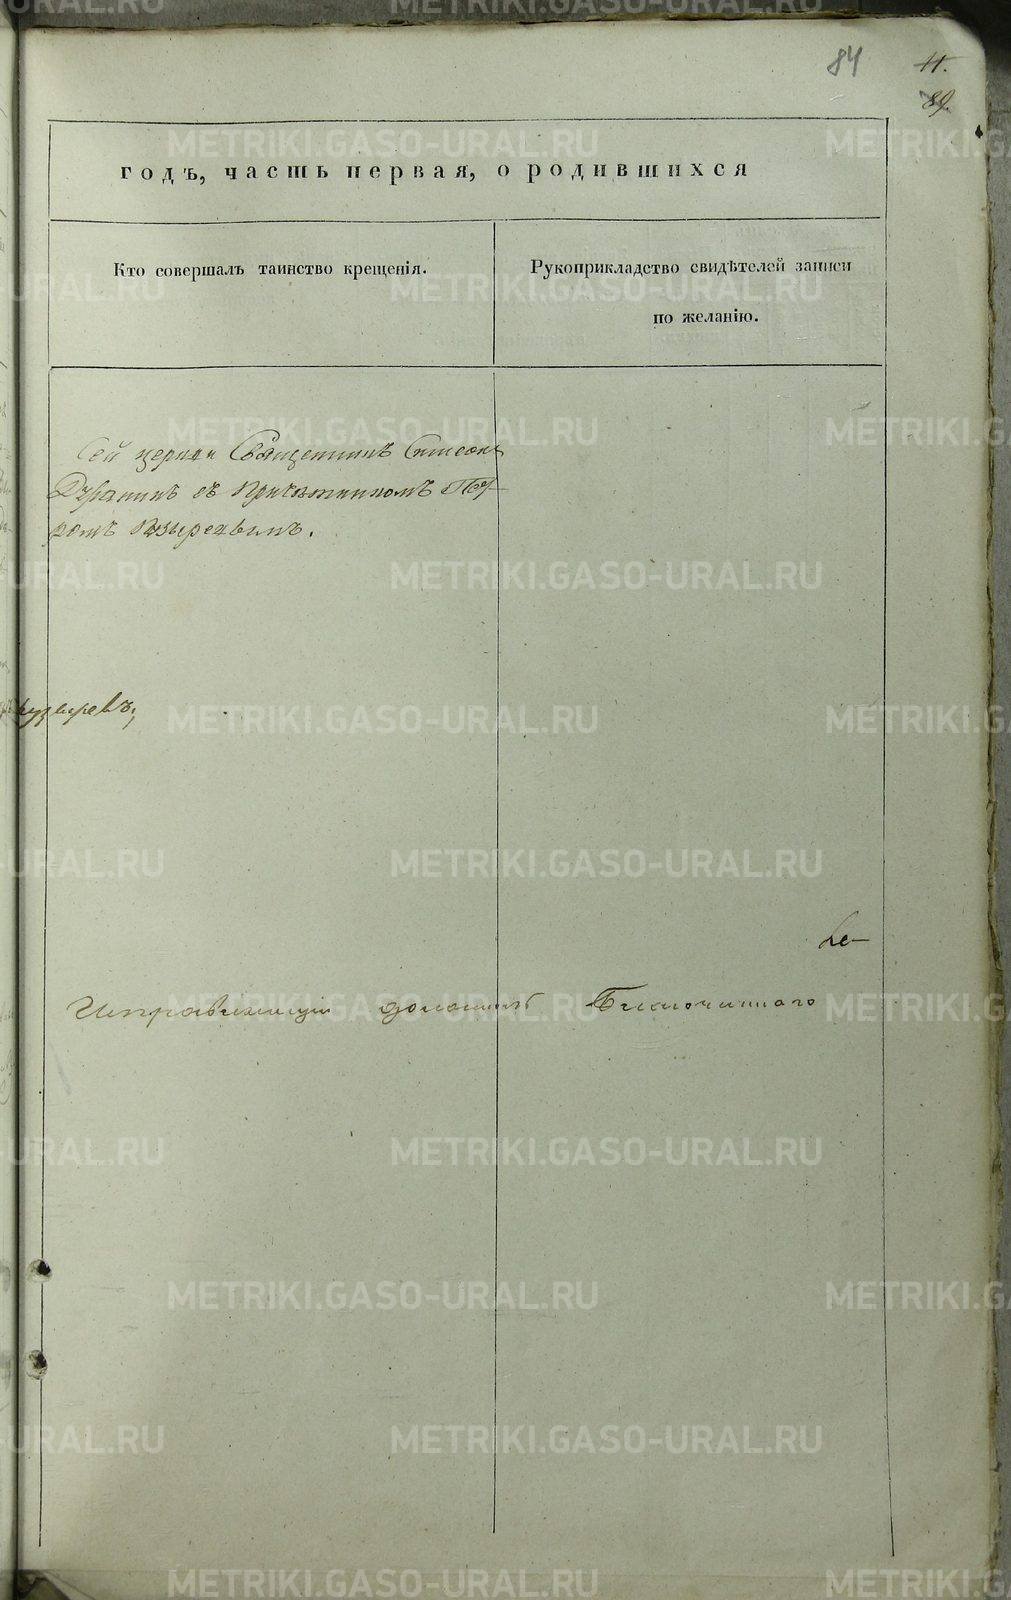 84
11.
89.
годъ, часть первая, о родившихся
Кто совершалъ таинство крещенія.
Рукоприкладство свидѣтелей записи
по желанію.
Сей церкви Священникъ Симеонъ
съ Причетникомъ Пет-
ромъ
Исправляющій должность Благочиннаго
METRIKI.GASO-URAL.RU